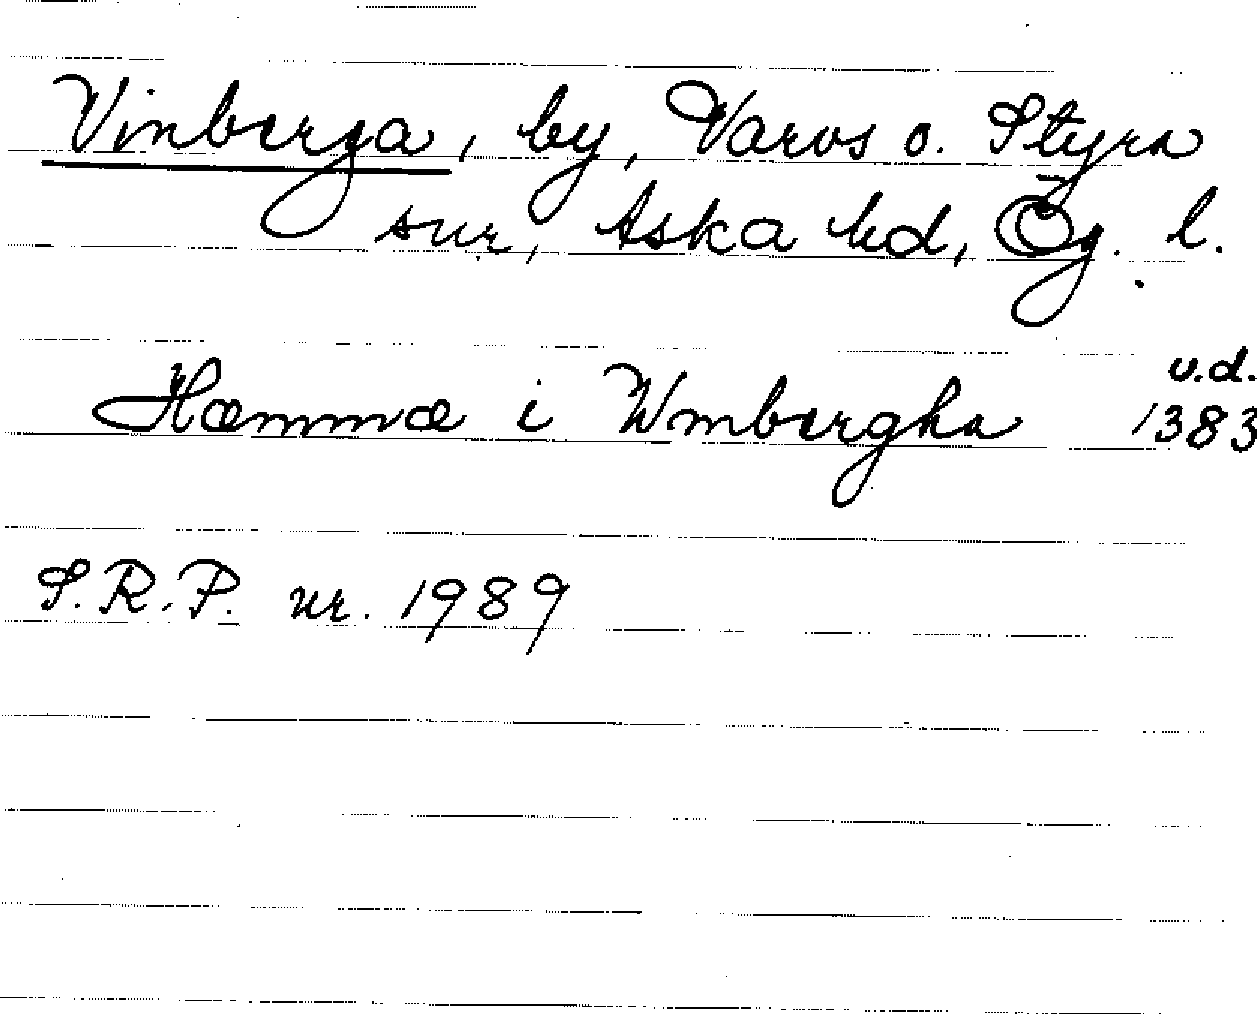 Vinberga, by, Varvs o. Styra
snr, Aska hd, Ög. l.
u.d.
Hæmmæ i Wmbergha 1383
S.R.P. nr. 1989